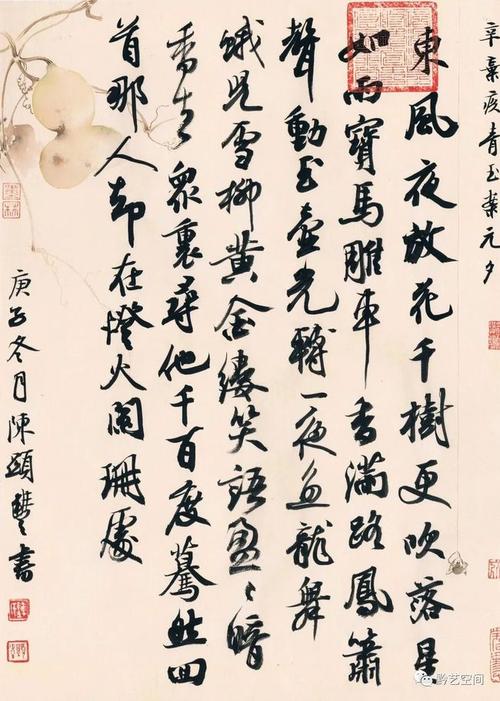 辛棄疾青玉案元夕
東風夜放花千樹更吹落星
如雨寶馬雕車香滿路鳳簫
聲動玉壺光轉一夜魚龍舞
蛾兒雪柳黃金縷笑語盈〻暗
香去眾裏尋他千百度驀然回
首那人却在燈火闌珊處
庚子冬月陳頤豐書
黔艺空间